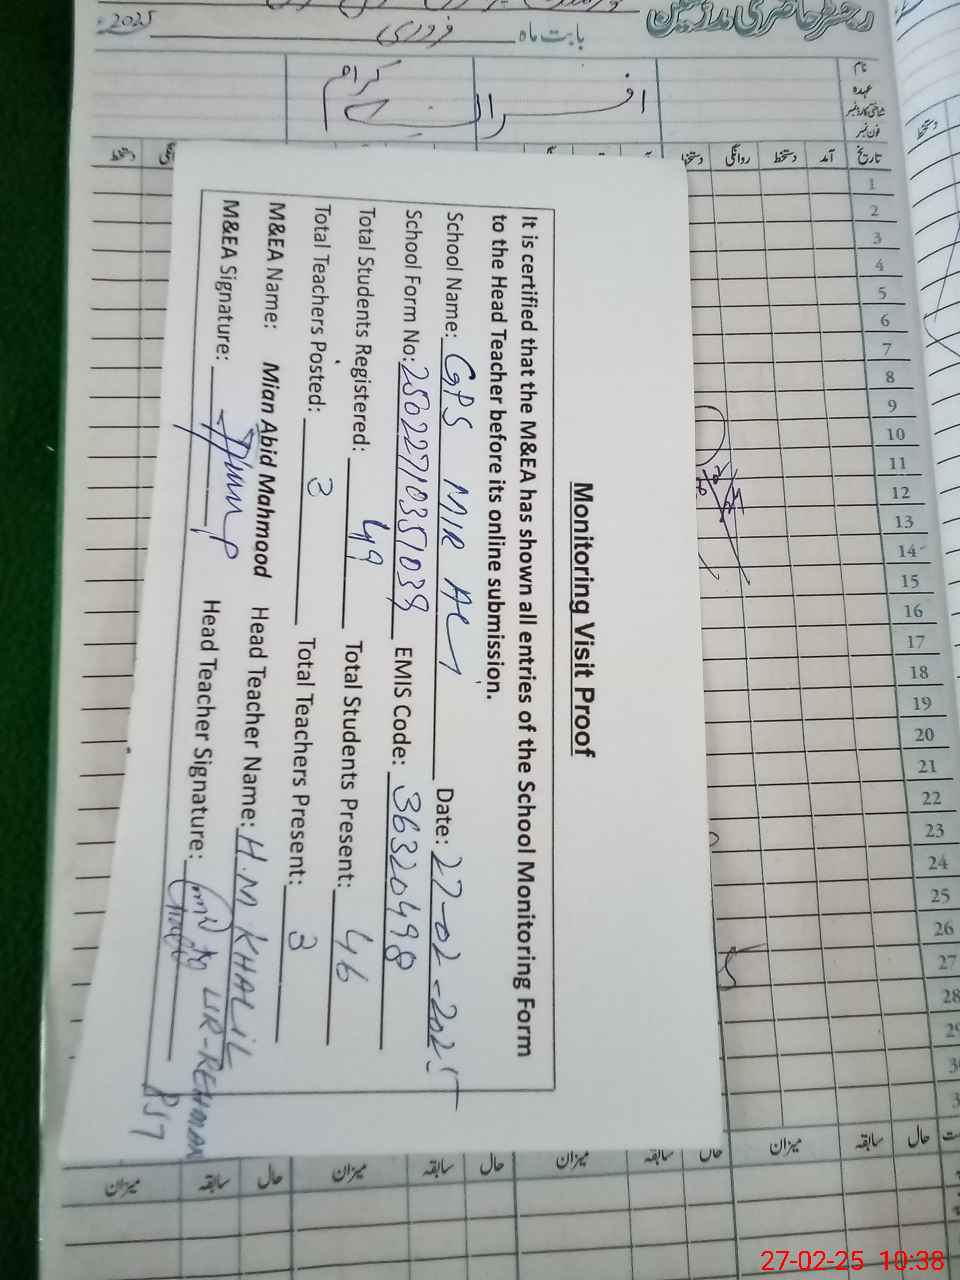 رجسٹر حاضری مدرسین
بابت ماہ فروری 2025
نام
عہدہ
شناختی کارڈ نمبر
فون نمبر
تاریخ آمد دستخط روانگی دستخط
1
2
3
4
5
6
7
8
9
10
11
12
13
14
15
16
17
18
19
20
21
22
23
24
25
26
27
28
29
Monitoring Visit Proof
It is certified that the M&EA has shown all entries of the School Monitoring Form
to the Head Teacher before its online submission.
School Name: GPS MIR ALI Date: 27-02-2025
School Form No: 25022710351039 EMIS Code: 36320498
Total Students Registered: 49 Total Students Present: 46
Total Teachers Posted: 3 Total Teachers Present: 3
M&EA Name: Mian Abid Mahmood Head Teacher Name: H.M KHALIL
UR-REHMAN
M&EA Signature: Head Teacher Signature:
حال سابقہ میزان حال سابقہ میزان حال سابقہ میزان
27-02-25 10:38